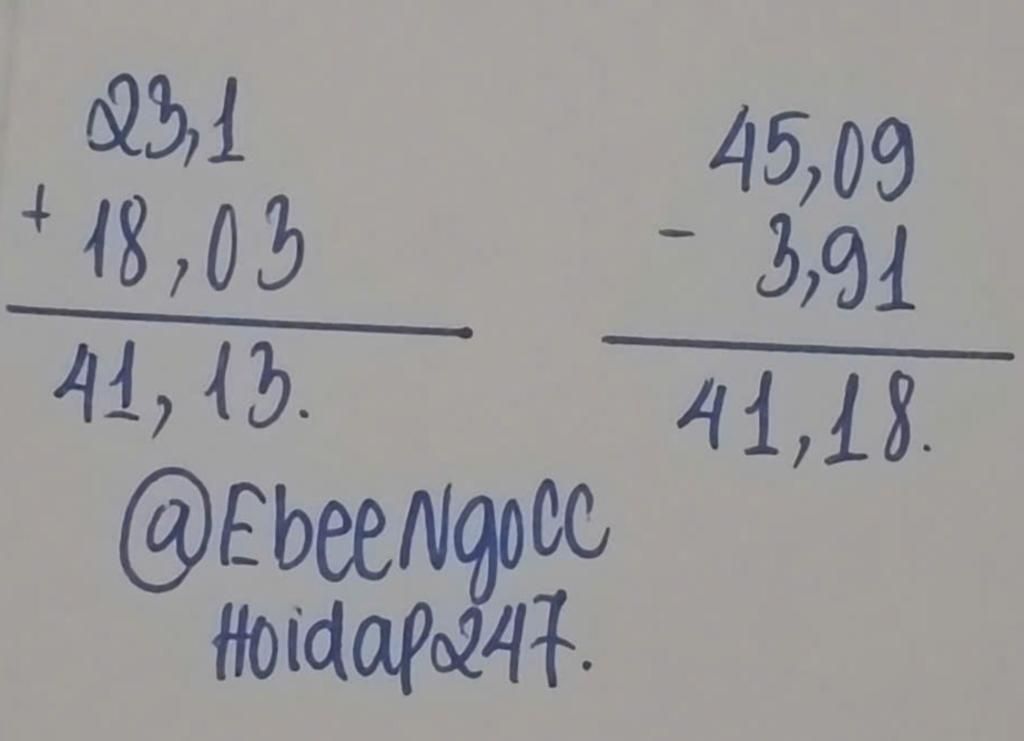 23,1
+ 18,03
41,13.
45,09
- 3,91
41,18.
@EbeeNgocc
Hoidap247.